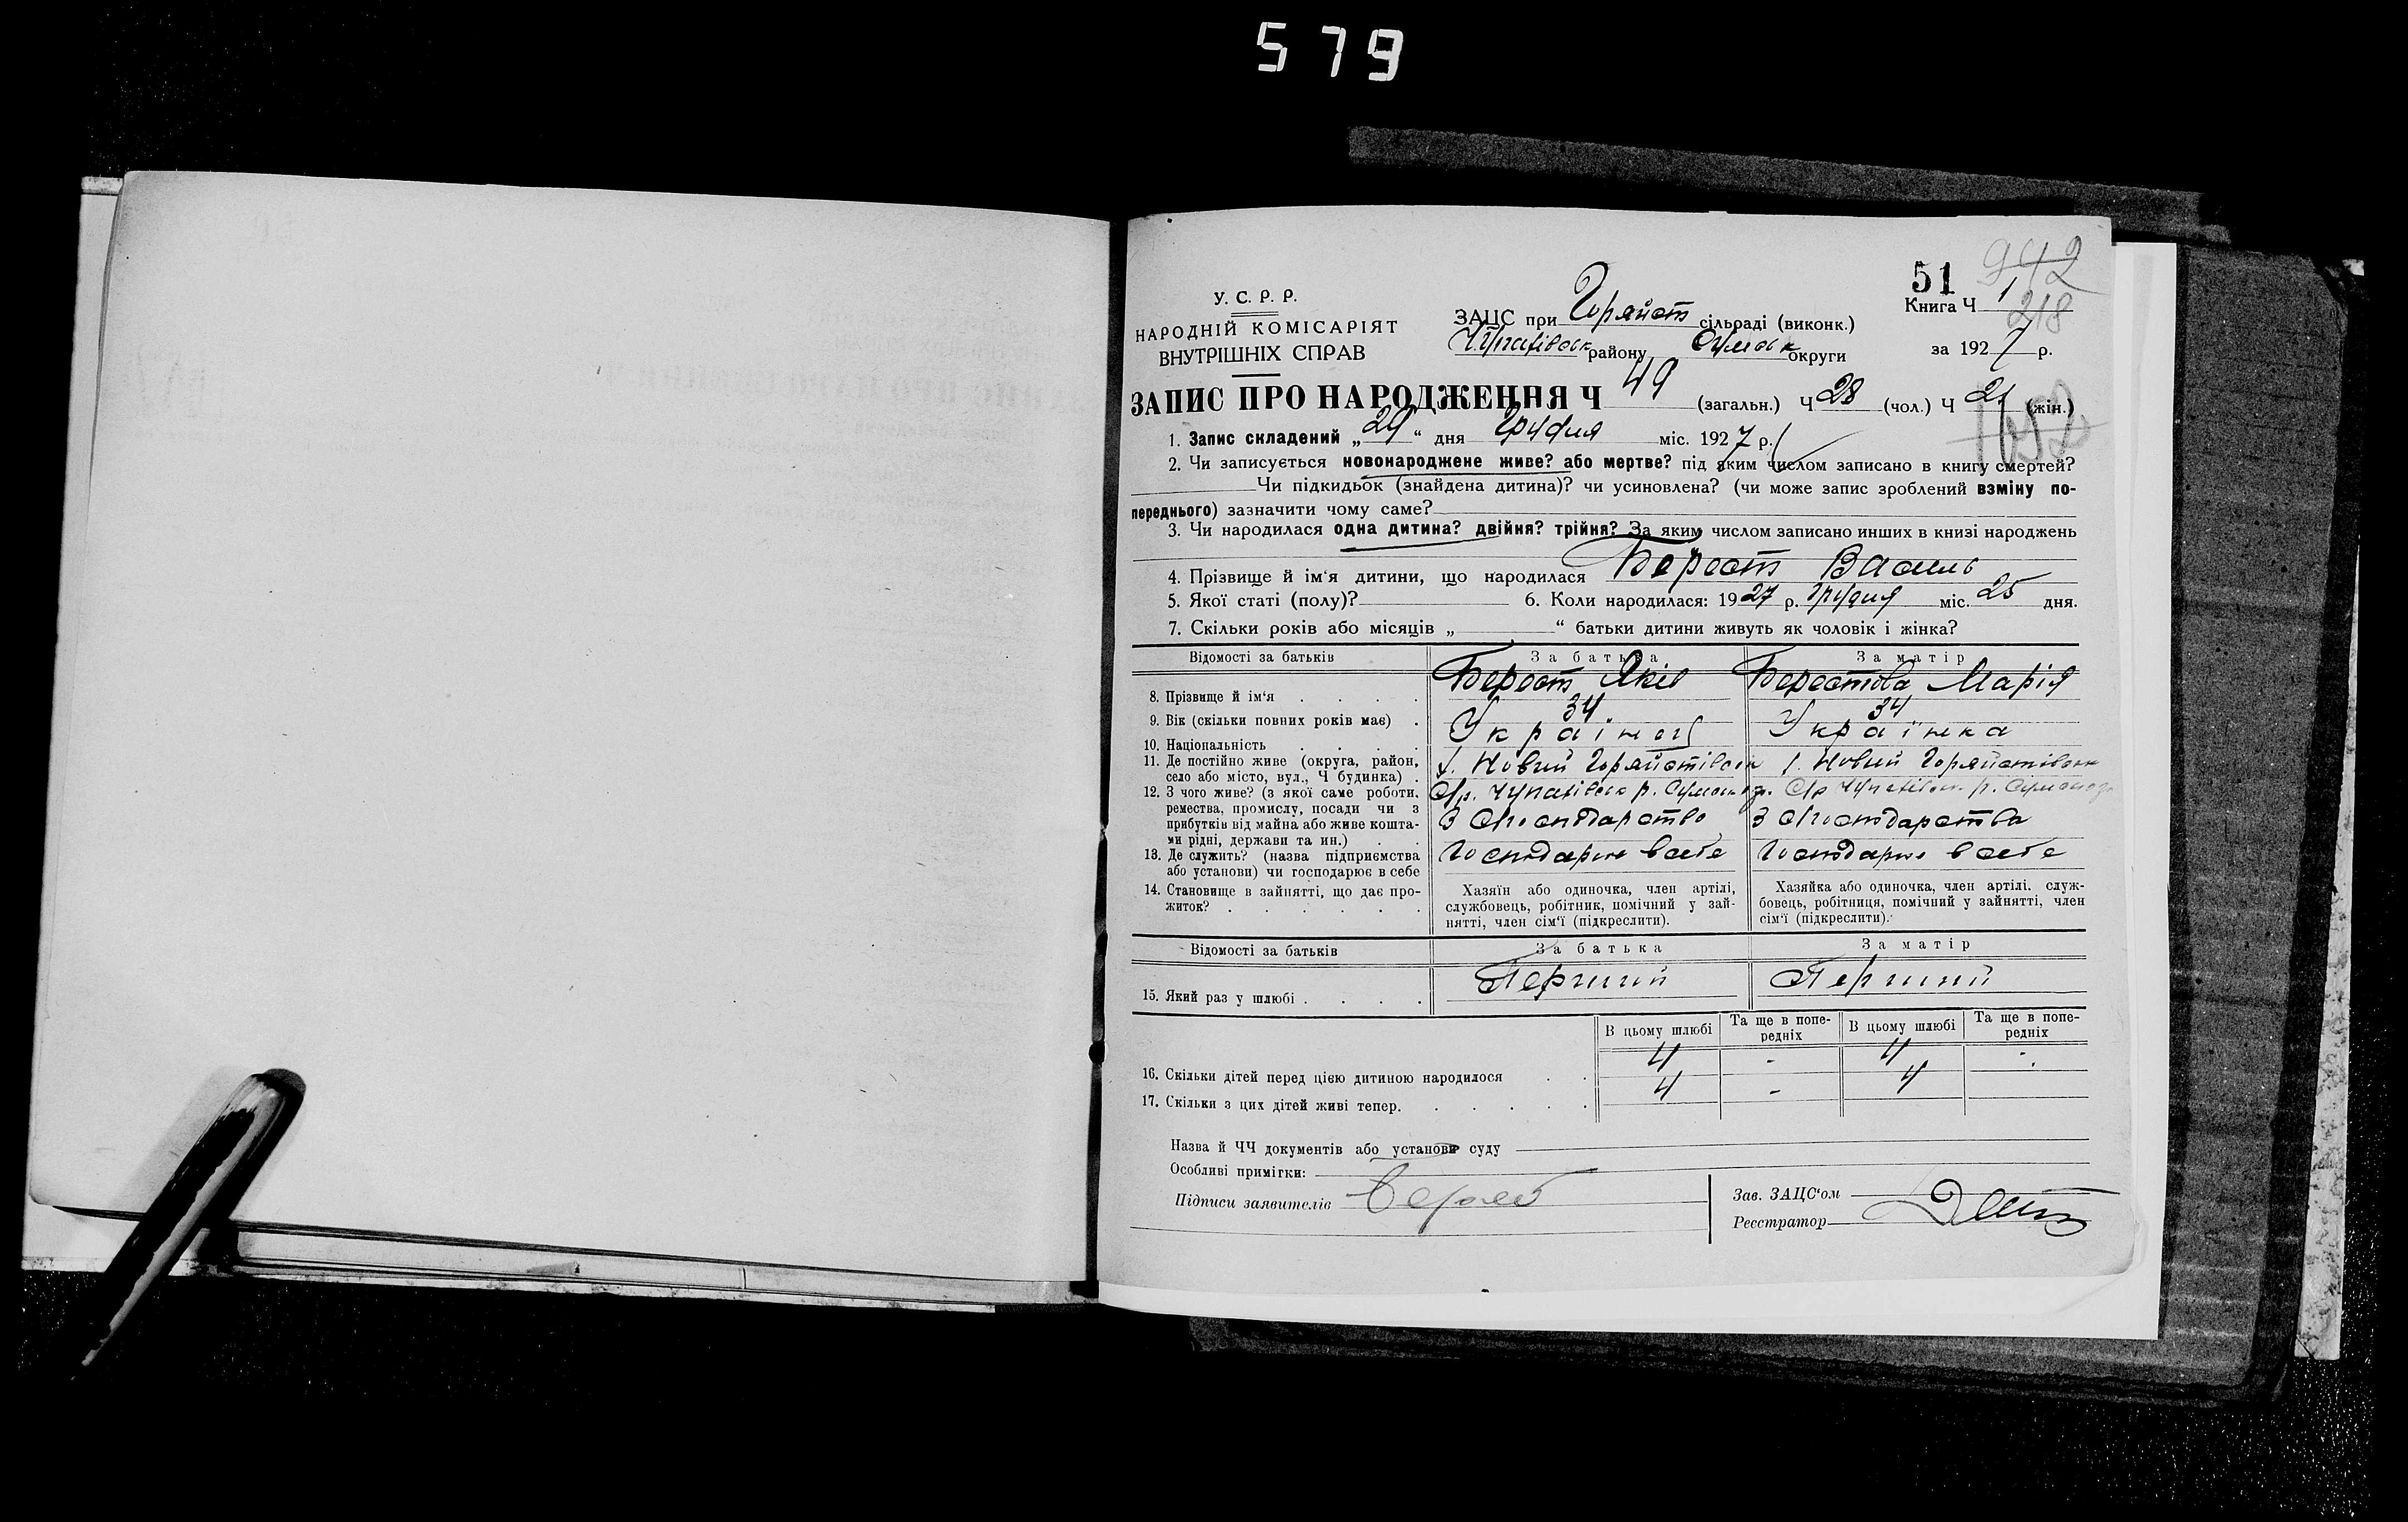 579
51
942
У. С. Р. Р.
НАРОДНІЙ КОМІСАРІЯТ
ВНУТРІШНІХ СПРАВ
Книга Ч 1
218
ЗАЦС при Горяйст сільраді (виконк.)
Чупахівськ району Сумськ округи
за 1927 р.
ЗАПИС ПРО НАРОДЖЕННЯ Ч 49 (загальн.) Ч 28 (чол.) Ч 21 (жін.)
1. Запис складений „29“ дня Грудня міс. 1927 р.
2. Чи записується новонароджене живе? або мертве? під яким числом записано в книгу смертей?
Чи підкидьок (знайдена дитина)? чи усиновлена? (чи може запис зроблений взміну по-
переднього) зазначити чому саме?
3. Чи народилася одна дитина? двійня? трійня? За яким числом записано инших в книзі народжень
4. Прізвище й ім‘я дитини, що народилася Берест Василь
5. Якої статі (полу)? 6. Коли народилася: 1927 р. Грудня міс. 25 дня.
7. Скільки років або місяців „ “ батьки дитини живуть як чоловік і жінка?
Відомості за батьків За батька За матір
8. Прізвище й ім‘я Берест Яків Берестова Марія
9. Вік (скільки повних років має) 34 34
10. Національність Українец Українка
11. Де постійно живе (округа, район, х. Новий Горяйстівськ х. Новий Горяйстівськ
село або місто, вул., Ч будинка)
12. З чого живе? (з якої саме роботи, с/р. Чупахівськ р. Сумськ с/р Чупахівськ р. Сумськ
ремества, промислу, посади чи з
прибутків від майна або живе кошта- З господарства З господарства
ми рідні, держави та ин.)
13. Де служить? (назва підприємства Господарює в себе Господарює в себе
або установи) чи господарює в себе
14. Становище в зайнятті, що дає про-
житок?
Хазяїн або одиночка, член артілі,
службовець, робітник, помічний у зай-
нятті, член сім‘ї (підкреслити).
Хазяйка або одиночка, член артілі, служ-
бовець, робітниця, помічний у зайнятті, член
сім‘ї (підкреслити).
Відомості за батьків За батька За матір
15. Який раз у шлюбі Перший Перший
В цьому шлюбі Та ще в попе-редніх В цьому шлюбі Та ще в попе-редніх
16. Скільки дітей перед цією дитиною народилося 4 - 4 -
17. Скільки з цих дітей живі тепер. 4 - 4
Назва й ЧЧ документів або установи суду
Особливі примітки:
Підписи заявителів
Зав. ЗАЦС‘ом
Реєстратор